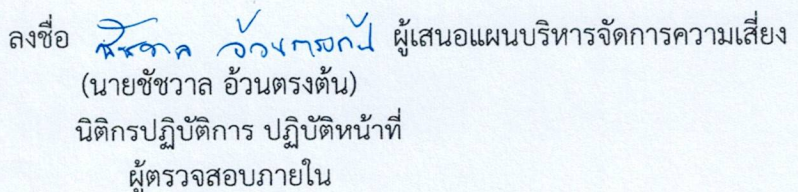 ลงชื่อ ชัชวาล อ้วนตรงต้น ผู้เสนอแผนบริหารจัดการความเสี่ยง
(นายชัชวาล อ้วนตรงต้น)
นิติกรปฏิบัติการ ปฏิบัติหน้าที่
ผู้ตรวจสอบภายใน